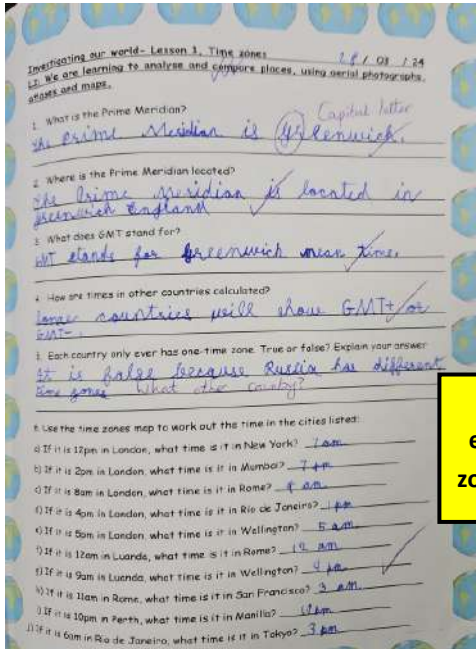 Investigating our world- Lesson 3, Time zones 28 / 03 / 24
LI: We are learning to analyse and compare places, using aerial photographs,
atlases and maps.
1. What is the Prime Meridian? Capital letter
the Prime Meridian is greenwich.
2. Where is the Prime Meridian located?
the Prime Meridian is located in
greenwich England
3. What does GMT stand for?
GMT stands for greenwich mean time.
4. How are times in other countries calculated?
countries will show GMT+ or
GMT-.
5. Each country only ever has one-time zone. True or false? Explain your answer
It is false because Russia has different
time zones What other country?
6. Use the time zones map to work out the time in the cities listed:
a) If it is 12pm in London, what time is it in New York? 7am
b) If it is 2pm in London, what time is it in Mumbai? 7pm
c) If it is 8am in London, what time is it in Rome? 9 am
d) If it is 4pm in London, what time is it in Rio de Janeiro? 1 pm
e) If it is 5pm in London, what time is it in Wellington? 5 am
f) If it is 12am in Luanda, what time is it in Rome? 12 am
g) If it is 9am in Luanda, what time is it in Wellington? 4 pm
h) If it is 11am in Rome, what time is it in San Francisco? 3 am
i) If it is 10pm in Perth, what time is it in Manilla?
j) If it is 6am in Rio de Janeiro, what time is it in Tokyo? 3 pm